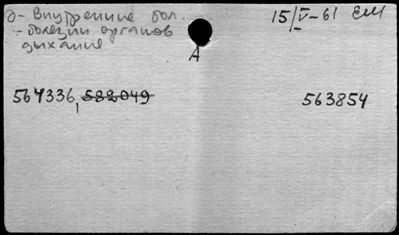 д - Внутренние бол.
- болезни органов
дыхание
15/V-61 ЕМ
А
564336, 582049
563854